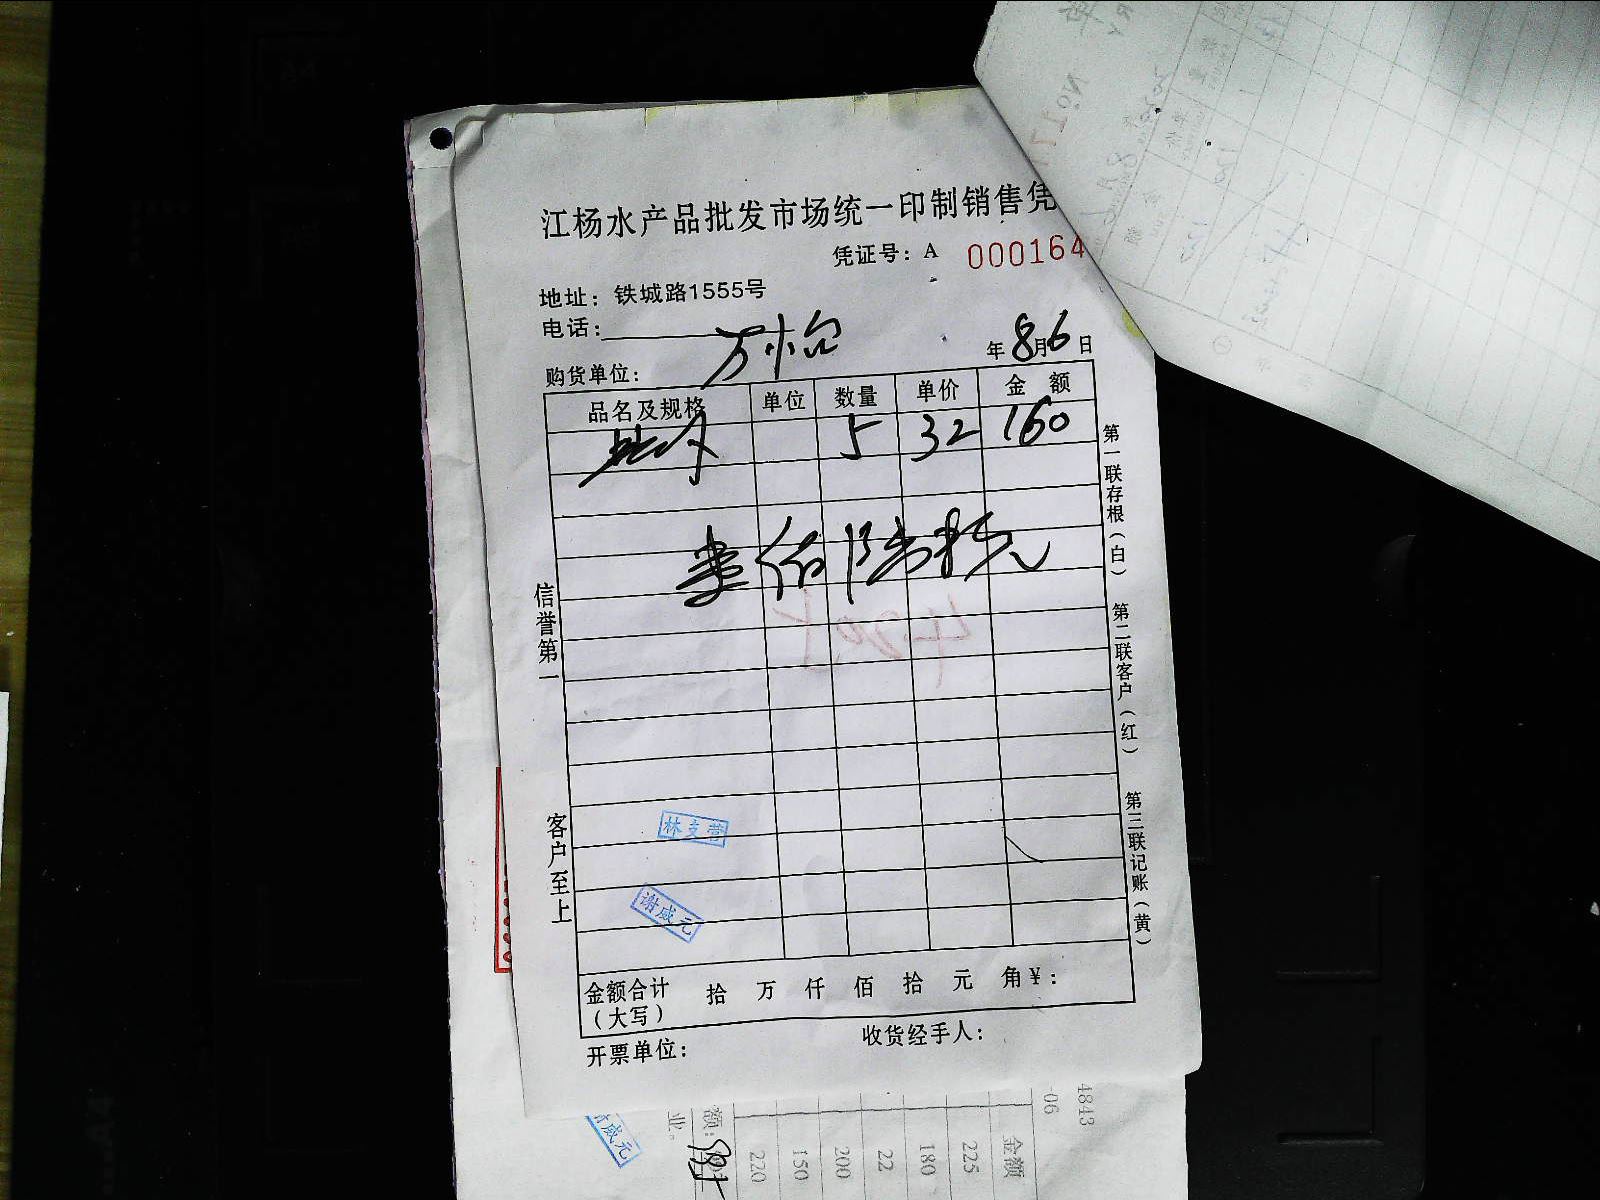 江杨水产品批发市场统一印制销售凭
凭证号：A 000164
地址：铁城路1555号
电话：
万怡
年8月6日
购货单位：
品名及规格 单位 数量 单价 金额
5 32 160
壹佰陆拾元
信誉第一
客户至上
第一联存根（白）
第二联客户（红）
第三联记账（黄）
林支营
谢咸元
金额合计（大写） 拾 万 仟 佰 拾 元 角 ¥：
开票单位： 收货经手人：
谢咸元
4843
-06
金额
225
180
22
200
150
220
额：
业。